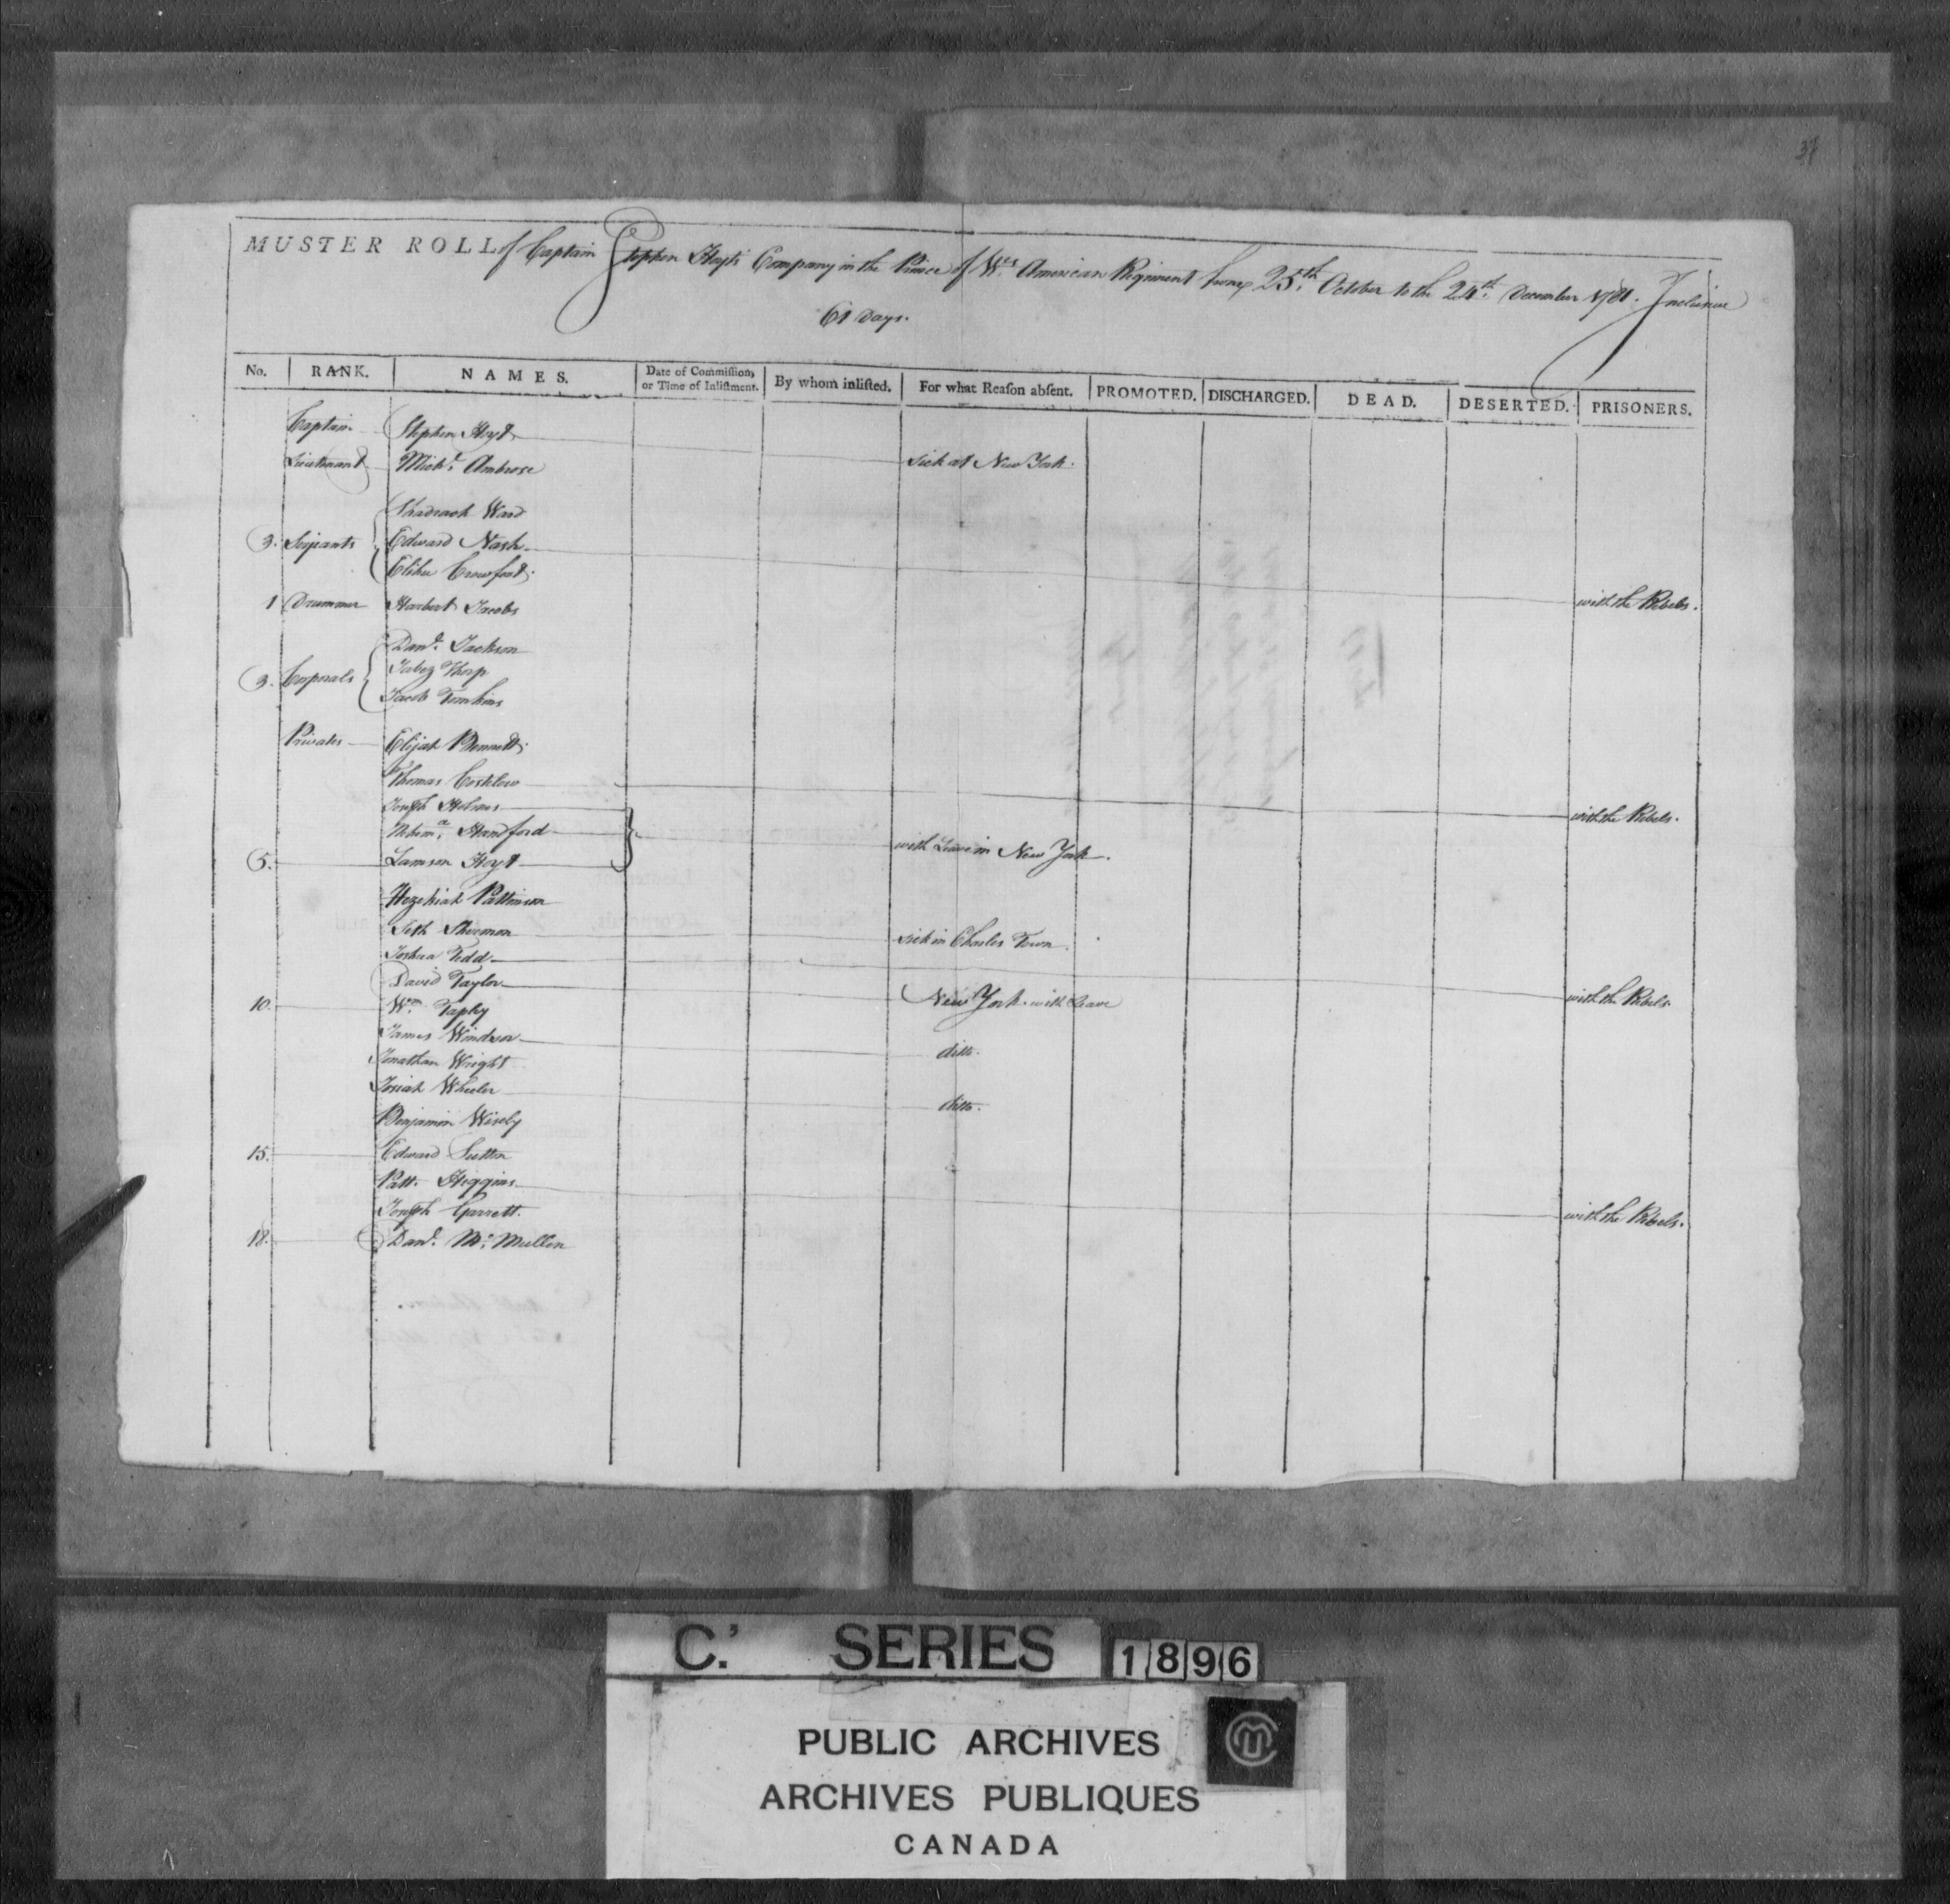 37
MUSTER ROLL of Captain Stephen Hoyts Company in the Prince of Wes American Regiment from 25th October to the 24th December 1781. Inclusive
61 Days.
No. RANK. NAMES. Date of Commission, or Time of Inlistment. By whom inlisted. For what Reason absent. PROMOTED. DISCHARGED. DEAD. DESERTED. PRISONERS.
Captain Stephen Hoyt
Lieutenant Michl. Ambrose sick at New York.
Shadrack Ward
3. Serjeants Edward Nash with the Rebels.
Elihu Crawford.
1 Drummer Harbert Jacobs
Danl. Jackson
3. Corporals Jabez Thorp
Jacob Tomkins
Privates Elijah Bennett.
Thomas Costelow with the Rebels.
Joseph Holmes
Nehema. Handford with Leave in New York.
5. Lamson Hoyt
Hezekiah Pattinson
Seth Shermon sick in Charles Town.
Joshua Tedd with the Rebels
David Taylor New York with Leave
10. Wm. Tapley
James Windsor ditto.
Jonathan Wright
Josiah Wheeler ditto.
Benjamin Wisely
15. Edward Sutton
Patt. Higgins with the Rebels.
Joseph Garrett.
18. Danl. Mc. Mullen
C.' SERIES 1896
PUBLIC ARCHIVES
ARCHIVES PUBLIQUES
CANADA